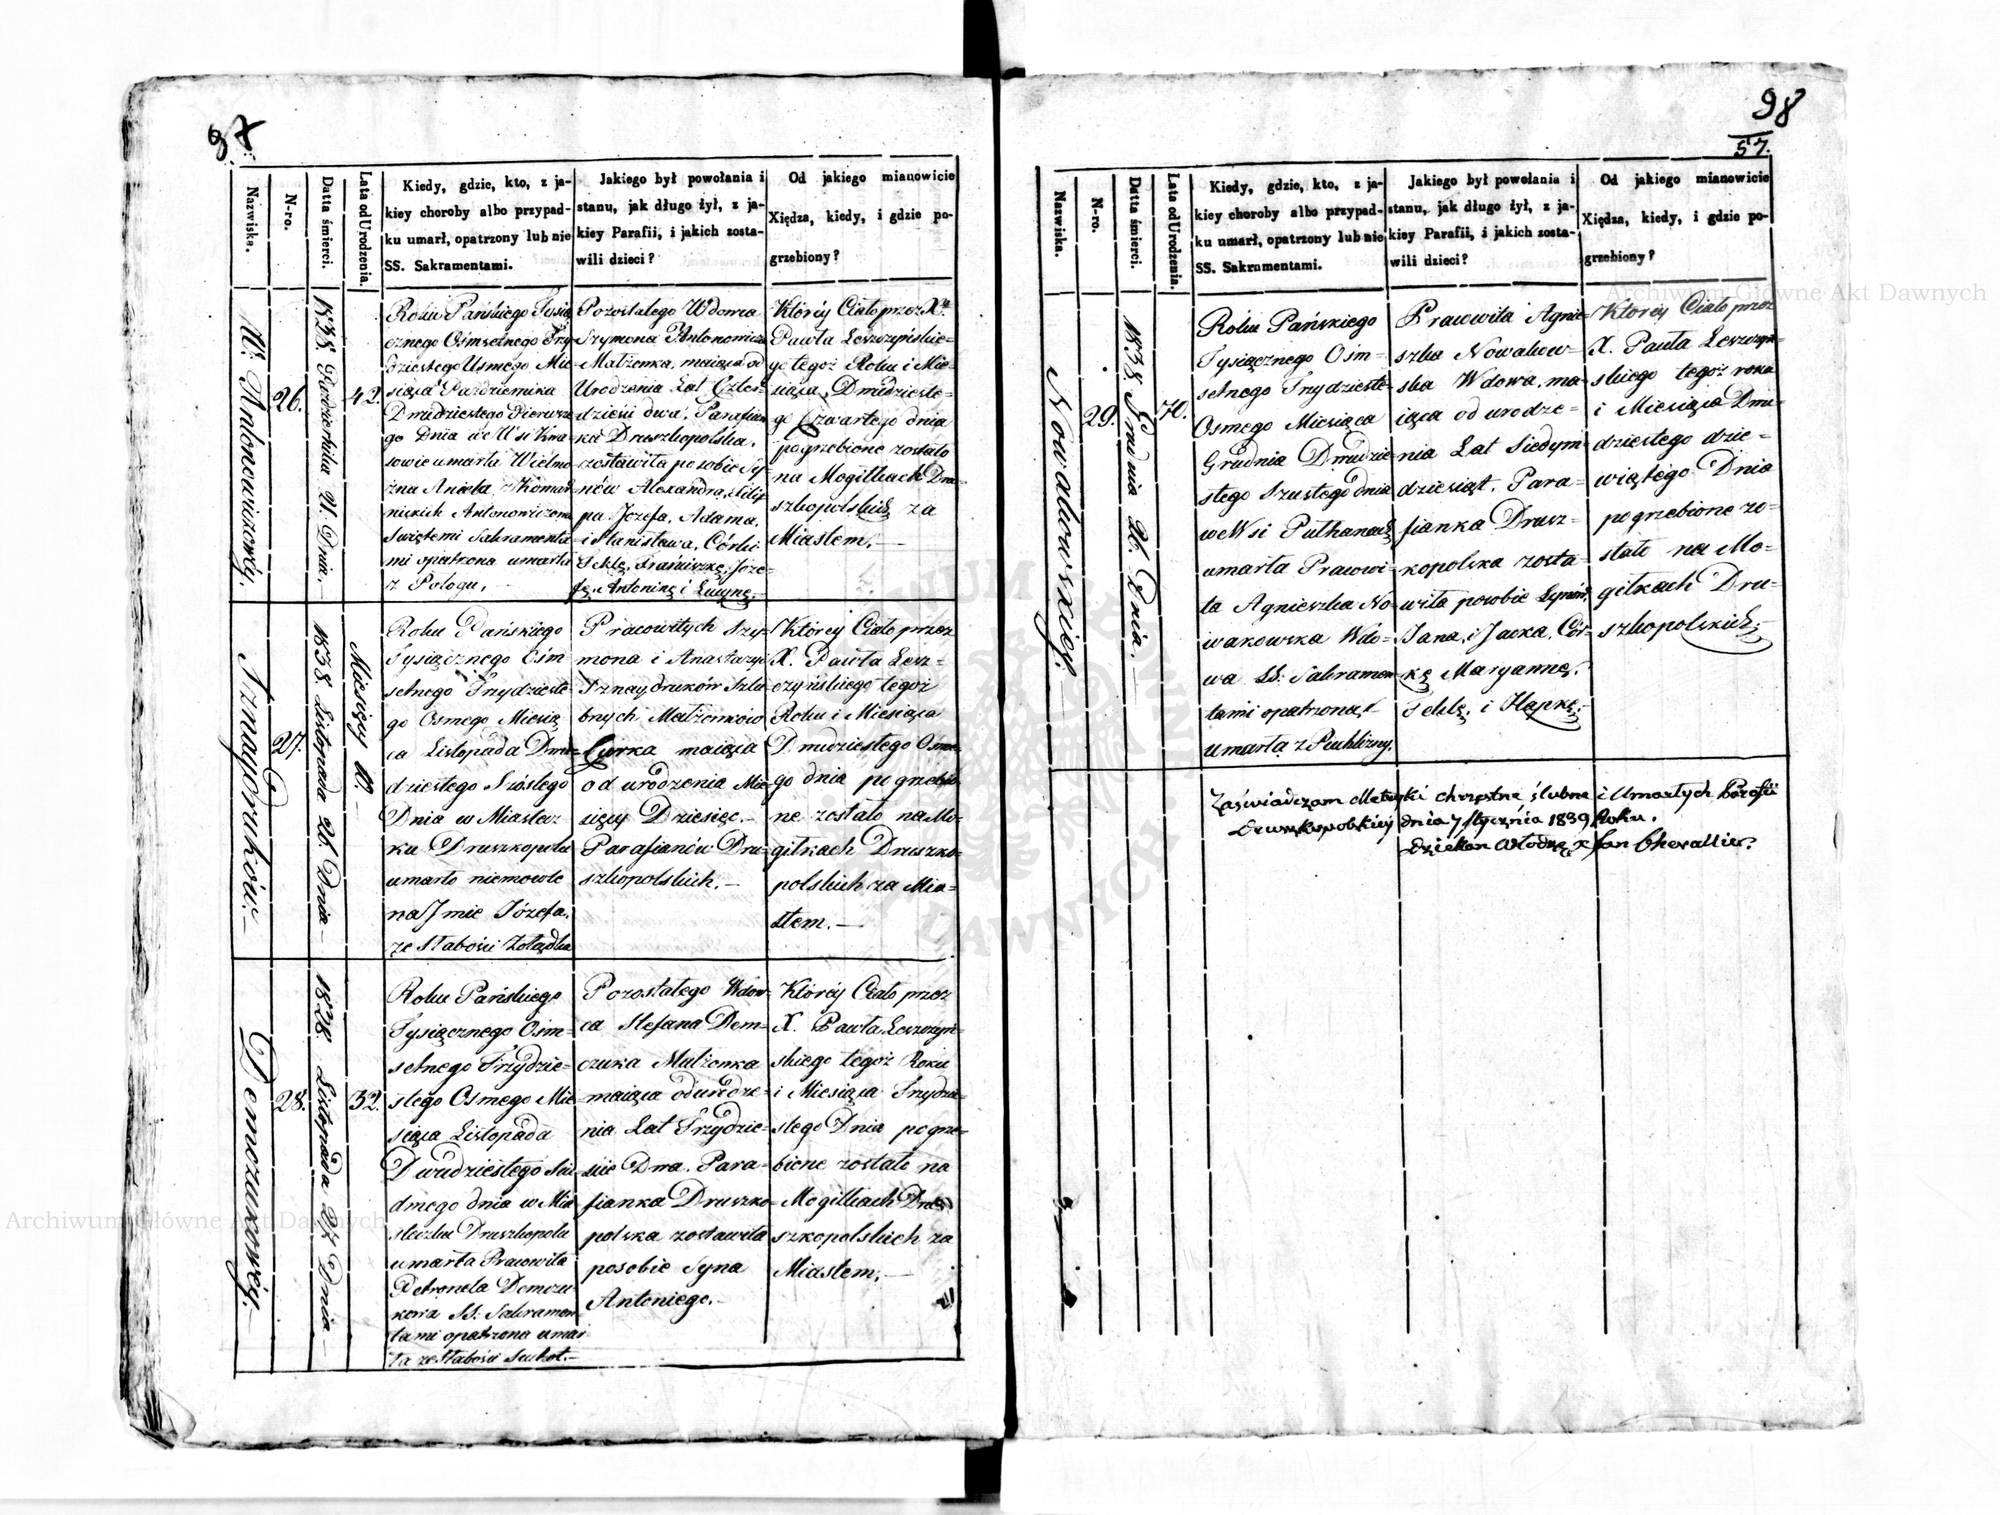 97
Nazwiska.
N-ro.
Datta śmierci.
Lata od Urodzenia.
Kiedy, gdzie, kto, z ja-
kiey choroby albo przypad-
ku umarł, opatrzony lub nie
SS. Sakramentami.
Jakiego był powołania i
stanu, jak długo żył, z ja-
kiey Parafii, i jakich zosta-
wili dzieci?
Od jakiego mianowicie
Xiędza, kiedy, i gdzie po-
grzebiony?
W. Antonowiczowéy.
26.
1838. Października 21. Dnia.
42.
Roku Pańskiego Tysią
cznego Ośmsetnego Trzy
dziestego Osmego Mie
siąca Października
Dwudziestego Pierwsze
go Dnia we Wsi Kwa
sowie umarła Wielmo
żna Aniela z Komar
nickich Antonowiczowa
Swiętemi Sakramenta
mi opatrzona umarła
z Pologu.
Pozostałego Wdowca
Szymona Antonowicza
Małżonka, maiąca od
Urodzenia Lat Czter
dzieści dwa, Parafian
ka Druszkopolska,
zostawiła po sobie Sy
nów Alexandra, Filip
pa, Jozefa, Adama,
i Stanisława, Córki
Teklę, Franciszkę, Joze-
fę, Antoninę i Lucynę.
Którey Ciało przez X.
Pawła Leszczyńskie-
go tegoż Roku i Mie-
siąca, Dwudzieste-
go Czwartego dnia
pogrzebione zostało
na Mogiłkach Dru-
szkopolskich za
Miastem.
Sznaydruków.
27.
1838 Listopada 26. Dnia
Miesięcy 10.
Roku Pańskiego
Tysiącznego Ośm
setnego Trzydzieste-
go Osmego Miesią
ca Listopada Dwu-
dziestego Szóstego
Dnia w Miastecz-
ku Druszkopolu
umarło niemowle
na Jmie Józefa.
ze słabości żołądka
Pracowitych Szy-
mona i Anastazyi
Sznaydruków Szlu
bnych Małżonków
Córka maiąca
od urodzenia Mie-
sięcy Dziesięć.
Parafianów Dru-
szkopolskich.
Którey Ciało przez
X. Pawła Lesz-
czyńskiego tegoż
Roku i Miesiąca
Dwudziestego Osme-
go dnia pogrzebio
ne zostało na Mo-
giłkach Druszko-
polskich za Mia-
stem.
Demczukowéy.
28.
1838. Listopada 27 Dnia
32.
Roku Pańskiego
Tysiącznego Ośm-
setnego Trzydzie-
stego Osmego Mie
siąca Listopada
Dwudziestego Siu
dmego dnia w Mia
steczku Druszkopolu
umarła Pracowita
Petronela Demczu-
kowa SS: Sakramen
tami opatrzona umar
ła ze słabości Suchot.
Pozostałego Wdow-
ca Stefana Dem-
czuka Małżonka
maiąca od urodze-
nia Lat Trzydzie-
ście Dwa. Para-
fianka Druszko-
polska zostawiła
po sobie Syna
Antoniego.
Którey Ciało przez
X. Pawła Leszczyń-
skiego tegoż Roku
i Miesiąca Trzydzie-
stego Dnia pogrze-
bione zostało na
Mogiłkach Dru-
szkopolskich za
Miastem.
98
57.
Nazwiska.
N-ro.
Datta śmierci.
Lata od Urodzenia.
Kiedy, gdzie, kto, z ja-
kiey choroby albo przypad-
ku umarł, opatrzony lub nie
SS. Sakramentami.
Jakiego był powołania i
stanu, jak długo żył, z ja-
kiey Parafii, i jakich zosta-
wili dzieci?
Od jakiego mianowicie
Xiędza, kiedy, i gdzie po-
grzebiony?
Nowakowskiey.
29.
1838 Grudnia 26. Dnia.
70.
Roku Pańskiego
Tysiącznego Ośm-
setnego Trzydzieste-
Osmego Miesiąca
Grudnia Dwudzie-
stego Szustego dnia
we Wsi Pulhanach
umarła Pracowi-
ta Agnieszka No-
wakowska Wdo-
wa SS: Sakramen
tami opatrzona
umarła z Puchliny.
Pracowita Agnie-
szka Nowakow-
ska Wdowa, ma-
iąca od urodze-
nia Lat Siedym
dziesiąt. Para-
fianka Drusz-
kopolska zosta-
wiła po sobie Synów,
Jana, i Jacka, Cór-
kę Maryannę,
Teklę, i Hapkę.
Którey Ciało przez
X. Pawła Leszczyń-
skiego tegoż roku
i Miesiąca Dwu-
dziestego dzie-
więtego Dnia
pogrzebione zo-
stało na Mo-
giłkach Dru-
szkopolskich.
Zaświadczam Metryki chrzestne ślubne i Umarłych Parafii
Druszkopolskiey dnia 7 Stycznia 1839 Roku.
Dziekan Włodz. X Jan Chevallier.
Archiwum Główne Akt Dawnych
Archiwum Główne Akt Dawnych